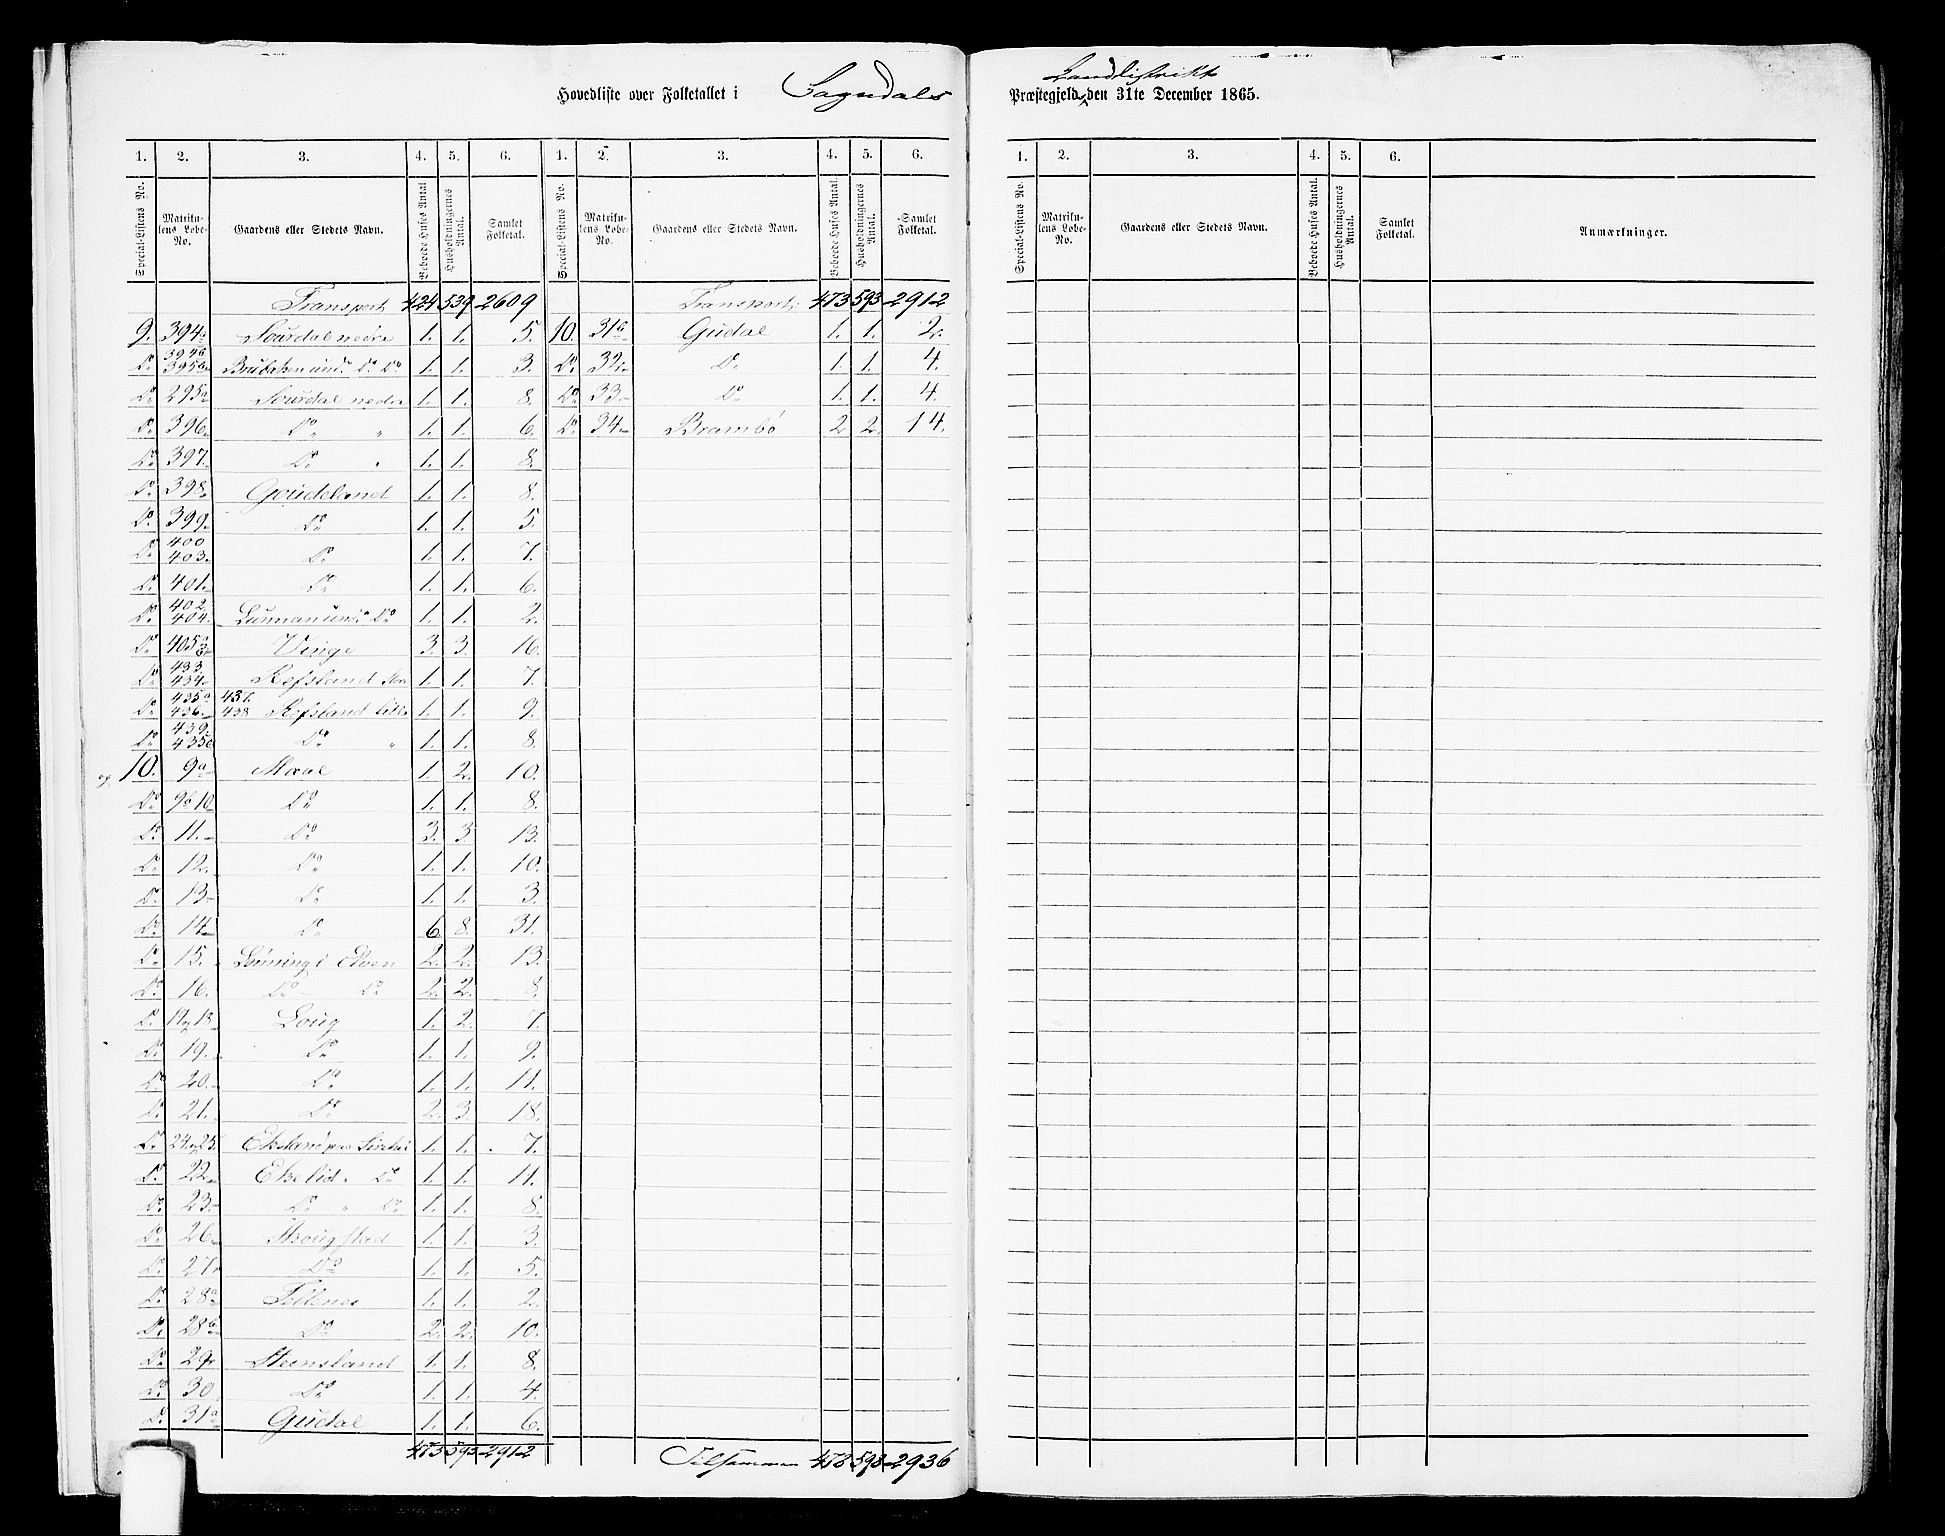 Hovedliste over Folketallet i Sogndals
Landdistrikt
Præstegjeld den 31te December 1865.
1. 2. 3. 4. 5. 6. 1. 2. 3. 4. 5. 6.
Special-Listens No. Matrikulens Løbe-No. Gaardens eller Stedets Navn. Beboede Huses Antal Husholdningernes Antal. Samlet Folketal. Special-Listens No. Matrikulens Løbe-No. Gaardens eller Stedets Navn. Beboede Huses Antal. Husholdningernes Antal. Samlet Folketal.
Transport 424 539 2609
9. 394a Sourdal nedre 1. 1. 5.
Do 394b 395b und. Do Do 1. 1. 3.
Do 295a Sourdal nedre 1. 1. 8.
Do 396. Do " 1. 1. 6.
Do 397. Do " 1. 1. 8.
Do 398. Goudeland 1. 1. 8.
Do 399. Do 1. 1. 5.
Do 400 403. Do 1. 1. 7.
Do 401. Do 1. 1. 6.
Do 402. 404. und. Do 1. 1. 2.
Do 405a Vinge 3. 3. 16.
Do 433. 434. Refsland Store 1. 1. 7.
Do 435a 436. 437. 438 Refsland lille 1. 1. 9.
Do 439. 435b Do " 1. 1. 8.
og 10. 9a Moal 1. 2. 10.
Do 9b 10 Do 1. 1. 8.
Do 11. Do 3. 3. 13.
Do 12. Do 1. 1. 10.
Do 13. Do 1. 1. 3.
Do 14. Do 6. 8. 31.
Do 15. Lønning i Elven 2. 2. 13.
Do 16. Do Do 2. 2. 8.
Do 17 og 18 Loug 1. 2. 7.
Do 19. Do 1. 1. 9.
Do 20. Do 1. 1. 11.
Do 21. Do 2. 3 18.
Do 24 og 25 1. 1. 7.
Do 22 Ekelid " Do 1. 1. 11.
Do 23. Do " Do 1. 1. 8.
Do 26. Skougstad 1. 1. 3.
Do 27. Do 1. 1. 5.
Do 28a Tellenes 1. 1. 2.
Do 28b Do 2. 2. 10.
Do 29. Steensland 1. 1. 8.
Do 30 Do 1. 1. 4.
Do 31a Gudal 1. 1. 6.
473 593 2912
Transport 473 593 2912
10. 31b Gudal 1. 1. 2.
Do 32. Do 1. 1. 4.
Do 33. Do 1. 1. 4.
Do 34. Brambø 2 2. 14.
Tilsammen 478 598 2936
1. 2. 3. 4. 5. 6.
Special-Listens No. Matrikulens Løbe-No. Gaardens eller Stedets Navn. Beboede Huses Antal. Husholdningernes Antal. Samlet Folketal. Anmærkninger.